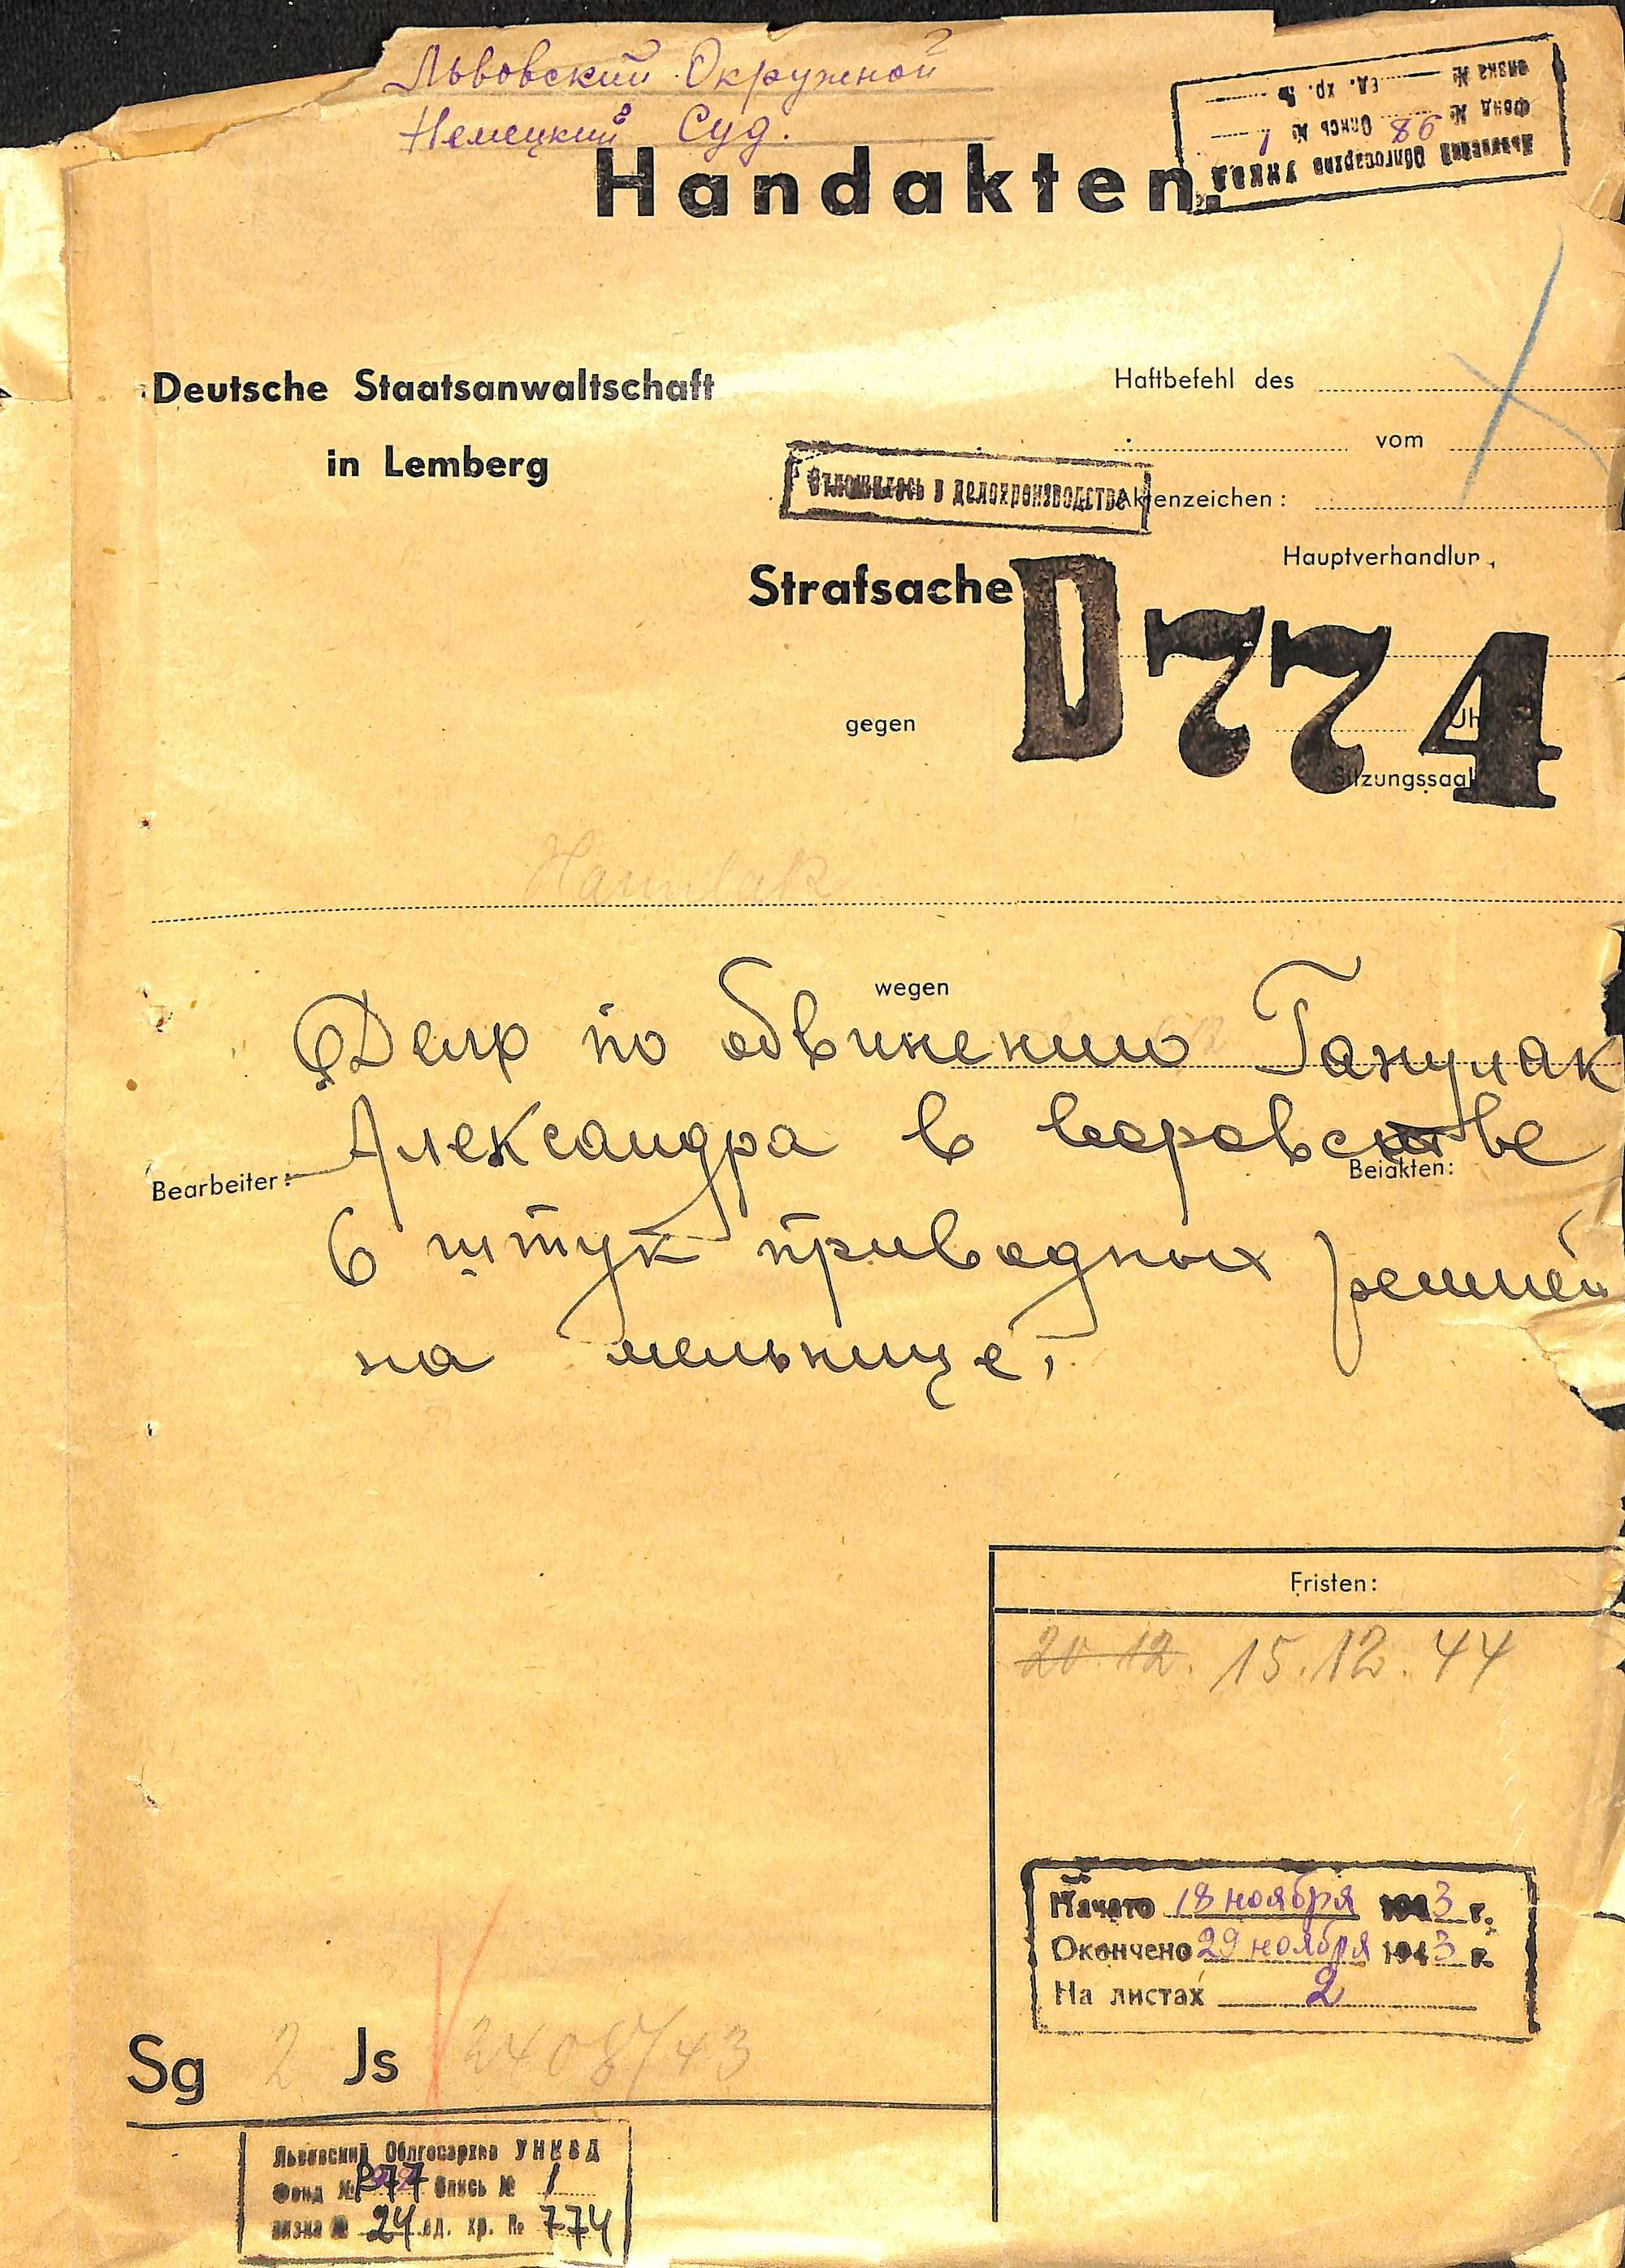 Львовский Окружной
Немецкий Суд.
Львовский Облгосархив УНКВД
Фонд № 86 Опись № 1
вязка № ед. хр. №
Handakten.
Deutsche Staatsanwaltschaft
in Lemberg
Haftbefehl des
vom
Отложилось в делопроизводстве
Aktenzeichen:
Hauptverhandlun
Strafsache
D774
gegen
Uh
Sitzungssaal
Hanulak
wegen
Дело по обвинению Ганулак
Александра в воровстве
Bearbeiter:
Beiakten:
6 штук приводных ремней
на мельнице.
Fristen:
20.12. 15.12.44
Начато 18 ноября 1943 г.
Окончено 29 ноября 1943 г.
На листах 2
Sg 2 Js 2408/43
Львовский Облгосархив УНКВД
Фонд № Р77 Опись № 1
вязка № 24 ед. хр. № 774